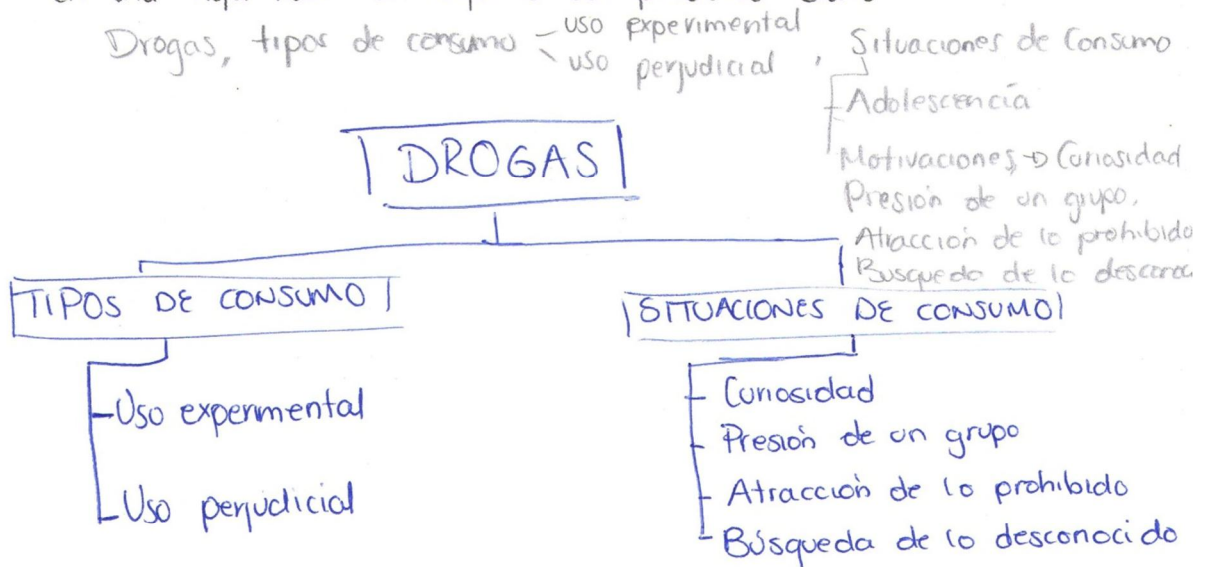 Drogas, tipos de consumo
uso experimental
uso perjudicial ,
Situaciones de Consumo
Adolescencia
Motivaciones → Curiosidad
Presión de un grupo,
Atracción de lo prohibido
Busqueda de lo
DROGAS
TIPOS DE CONSUMO
- Uso experimental
- Uso perjudicial
SITUACIONES DE CONSUMO
- Curiosidad
- Presión de un grupo
- Atracción de lo prohibido
- Búsqueda de lo desconocido